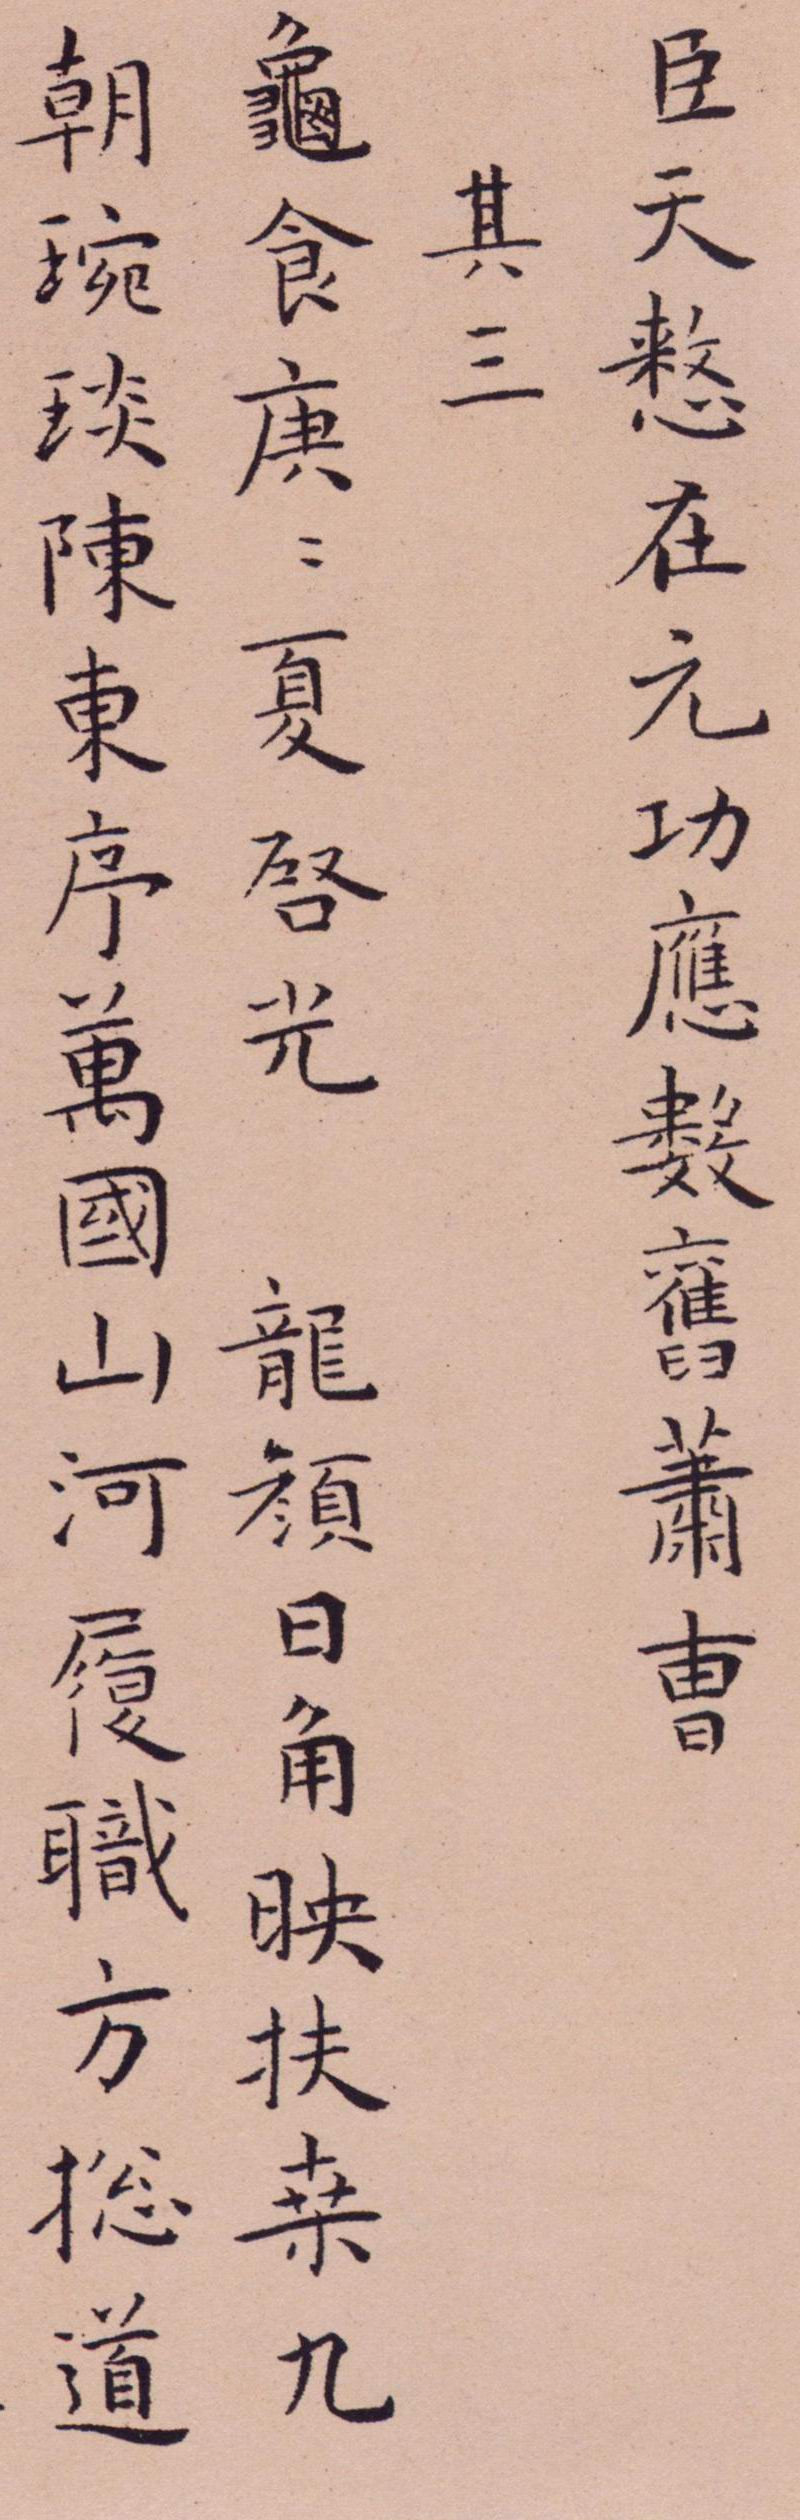 臣天憗在元功應數舊蕭曹
其三
龜食庚〻夏啓光　龍顏日角映扶桒九
朝琬琰陳東序萬國山河履職方揔道